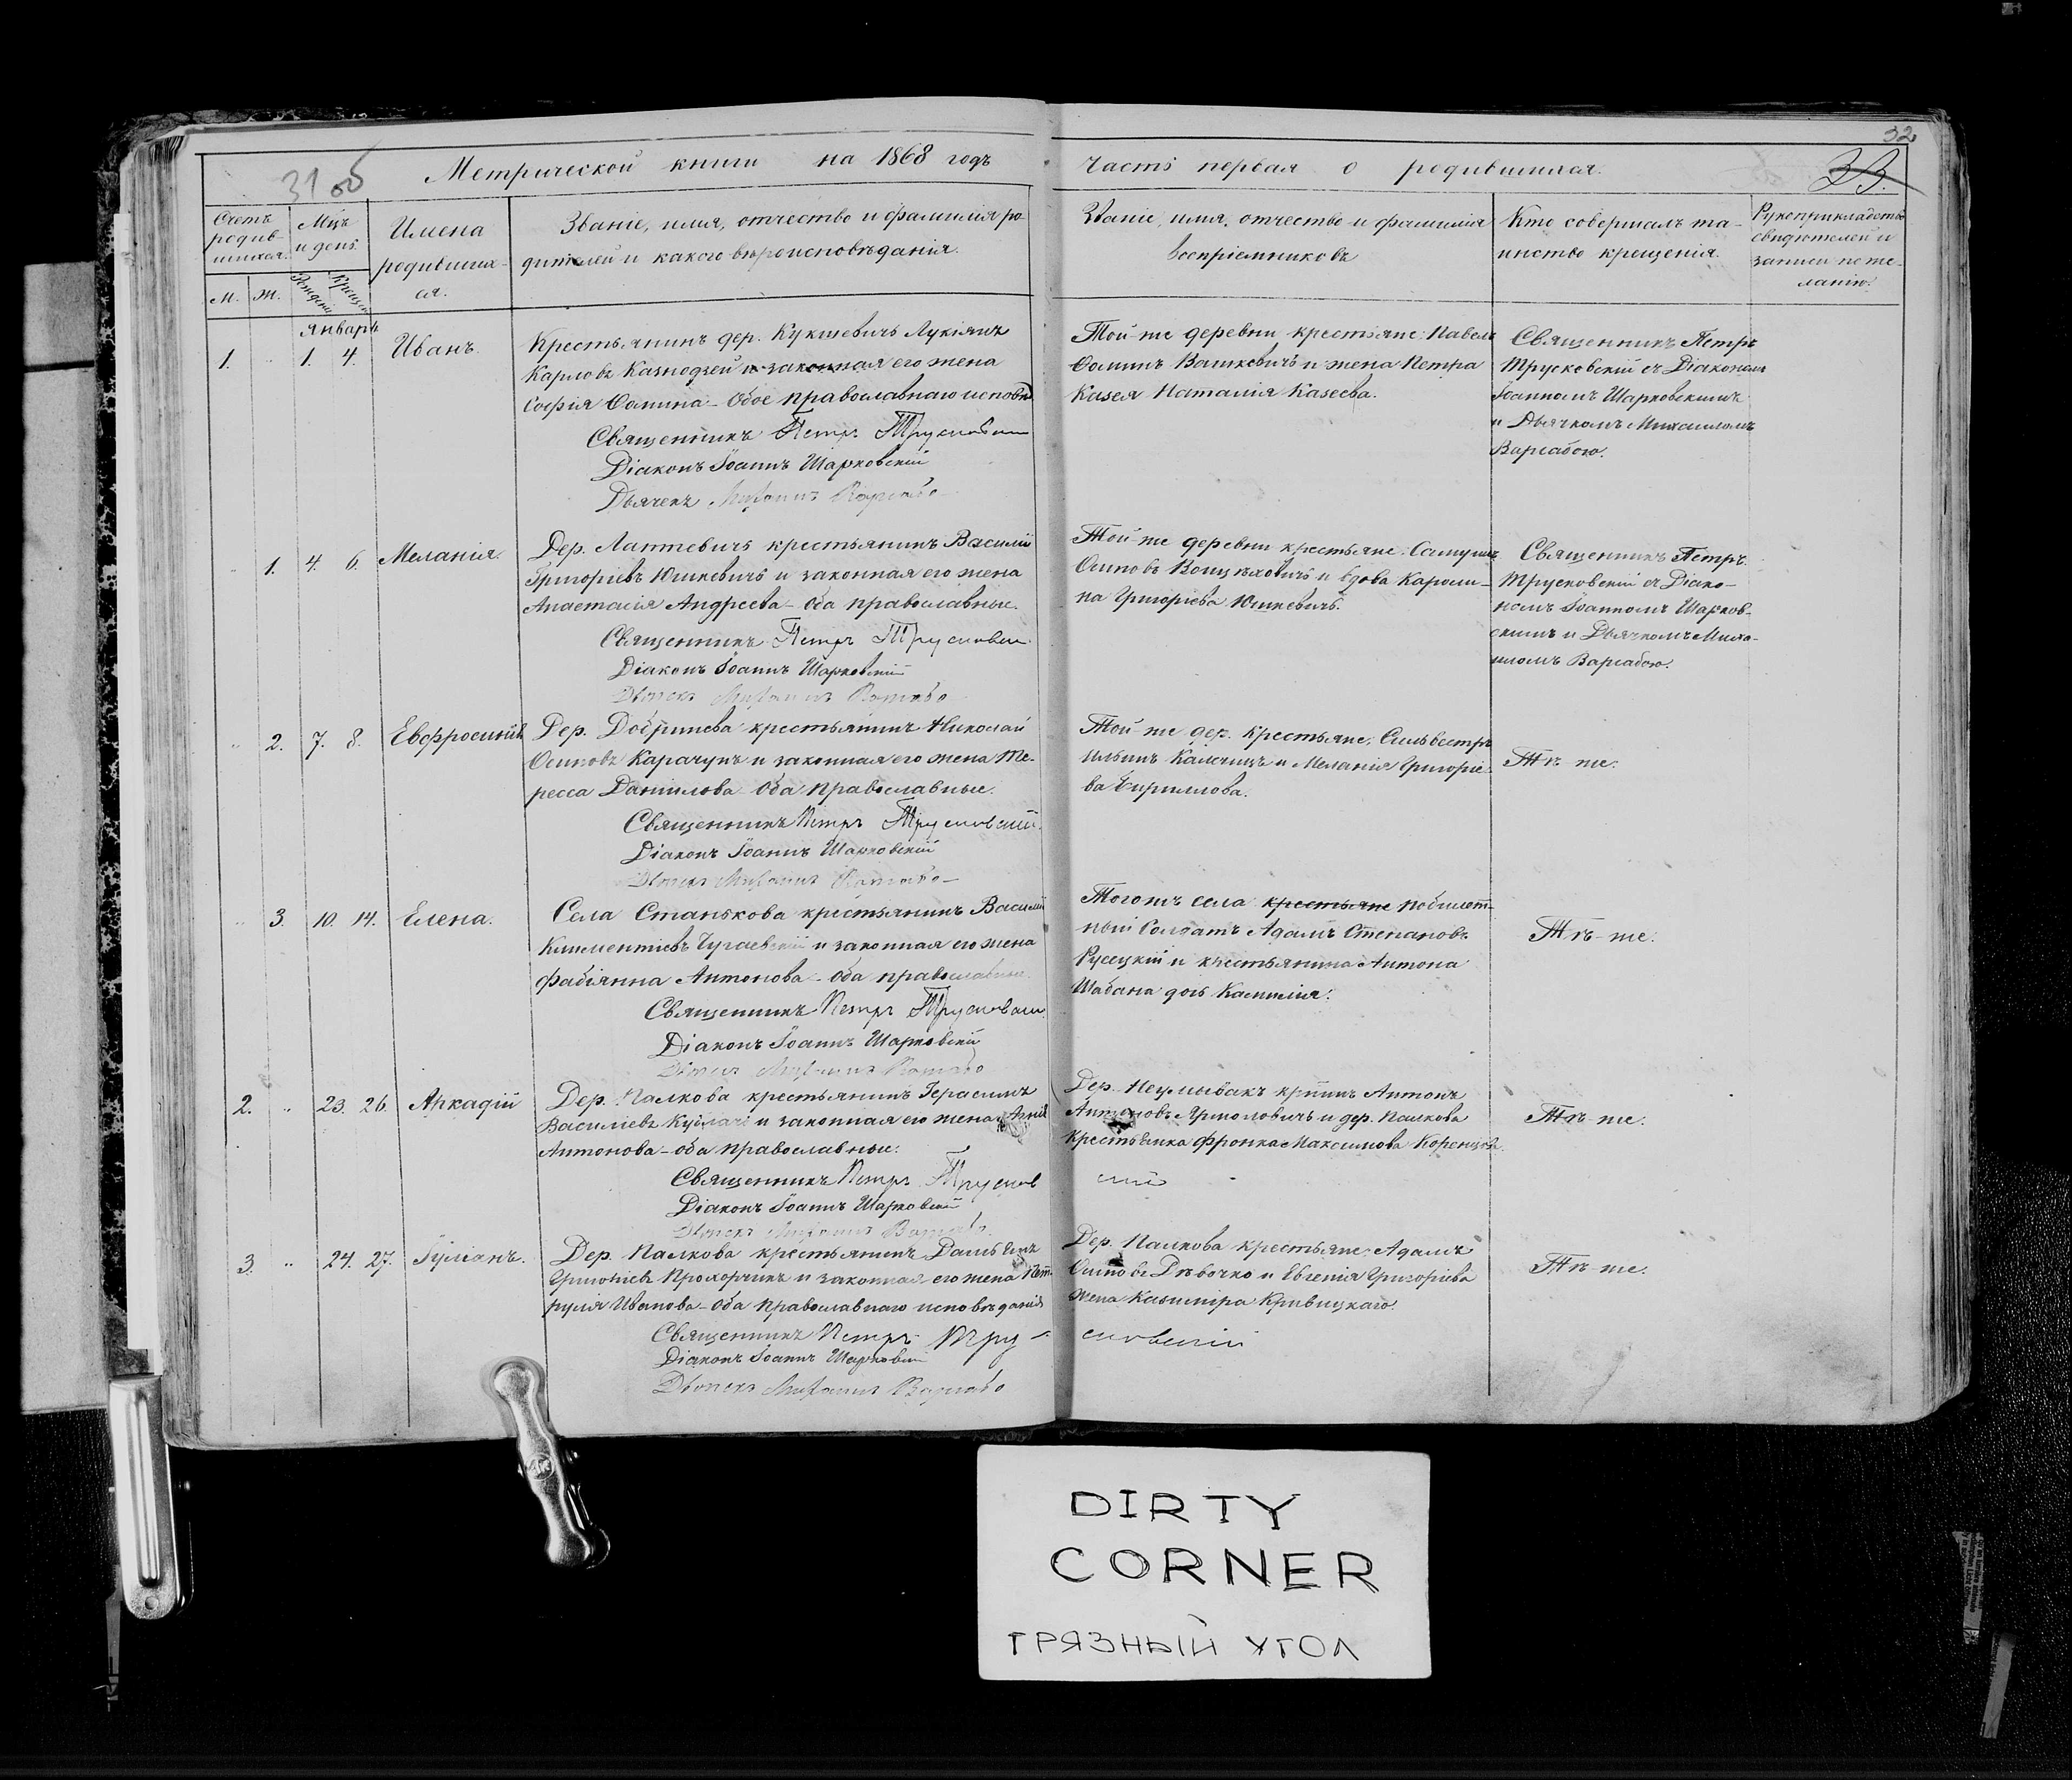 32
31 об
33.
Метрической книги на 1868 годъ
часть первая о родившихся.
Счетъ родив-шихся.
М. Ж.
Мцъ и день.
Рожденія Крещен
Имена родивших-ся.
Званіе, имя, отчество и фамилія ро-
дителей и какого вѣроисповѣданія.
Званіе, имя, отчество и фамилія
воспріемниковъ
Кто совершалъ та-
инство крещенія.
Рукоприкладство
свидѣтелей и
записи по же-
ланію.
Январь
1. " 1. 4. Иванъ.
Крестьянинъ дер. Кукшевичь Лукіянъ
Карловъ Казнодзей и законная его жена
Софія Фомина - Обое православнаго исповѣд
Священникъ Петръ Трусковскій
Діаконъ Іоаннъ Шарковскій
Дьячекъ Михаилъ Варгабо
Той-же деревни крестьяне: Павелъ
Фоминъ Вашкевичъ и жена Петра
Казея Наталія Казеева.
Священникъ Петръ
Трусковскій съ Діакономъ
Іоанномъ Шарковскимъ
и Дьячкомъ Михаиломъ
Варгабою.
" 1. 4. 6. Меланія.
Дер. Лаптевичъ крестьянинъ Василій
Григоріевъ Юшкевичъ и законная его жена
Анастасія Андреева - оба православные.
Священникъ Петръ Трусковскій
Діаконъ Іоаннъ Шарковскій
Дьячекъ Михаилъ Варгабо
Той-же деревни крестьяне: Самуилъ
Осиповъ Войцѣховичъ и вдова Кароли-
на Григоріева Юшкевичъ.
Священникъ Петръ
Трусковскій съ Діако-
номъ Іоанномъ Шарков-
скимъ и Дьячкомъ Миха-
иломъ Варгабою.
" 2. 7. 8. Евфросинія
Дер. Добринева крестьянинъ Николай
Осиповъ Карачунъ и законная его жена Те-
ресса Данилова - Оба православные.
Священникъ Петръ Трусковскій.
Діаконъ Іоаннъ Шарковскій
Дьячекъ Михаилъ Варгабо
Той-же дер. крестьяне: Сильвестръ
Ильинъ и Меланія Григоріе-
ва Кириллова.
Тѣ-же.
" 3. 10. 14. Елена.
Села Станькова крестьянинъ Василій
Климентіевъ и законная его жена
Фабіянна Антонова - оба православные.
Священникъ Петръ Трусковскій
Діаконъ Іоаннъ Шарковскій
Дьячекъ Михаилъ Варгабо
Тогожъ села крестьяне побилет-
ный Солдатъ Адамъ Степановъ
Русецкій и крестьянина Антона
Шабана дочь Камилія.
Тѣ-же.
2. " 23. 26. Аркадій
Дер. Палкова крестьянинъ Герасимъ
Василіевъ и законная его жена
Антонова - оба православные.
Священникъ Петръ Трусков скій
Діаконъ Іоаннъ Шарковскій
Дьячекъ Михаилъ Варгабо
Дер. крнинъ Антонъ
Антоновъ Ярмоловичъ и дер. Палкова
крестьянка Фронка Максимова
Тѣ-же.
3. " 24. 27. Іуліанъ.
Дер. Палкова крестьянинъ
Прохорчикъ и законная его жена Пет-
руля Иванова - оба православнаго исповѣданія
Священникъ Петръ Тру- сковскій
Діаконъ Іоаннъ Шарковскій
Дьячекъ Михаилъ Варгабо
Дер. Палкова крестьяне: Адамъ
Осиповъ Дѣвочко и Евгенія Григоріева
жена Казиміра Кривицкаго.
Тѣ-же.
DIRTY
CORNER
ГРЯЗНЫЙ УГОЛ